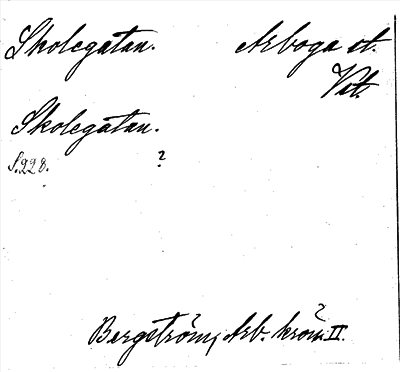 Skolegatan. Arboga st.
Vstm.
Skolegatan.
S. 228. ?
Bergström, Arb. krön. II.